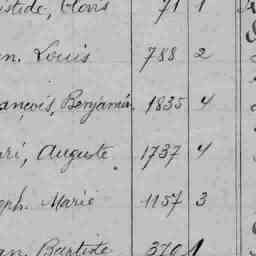 istide, Clovis 71 1
n. Louis 788 2
ançois, Benjamin 1835 4
ri, Auguste 1737 4
eph Marie 1157 3
an Baptiste 370 1